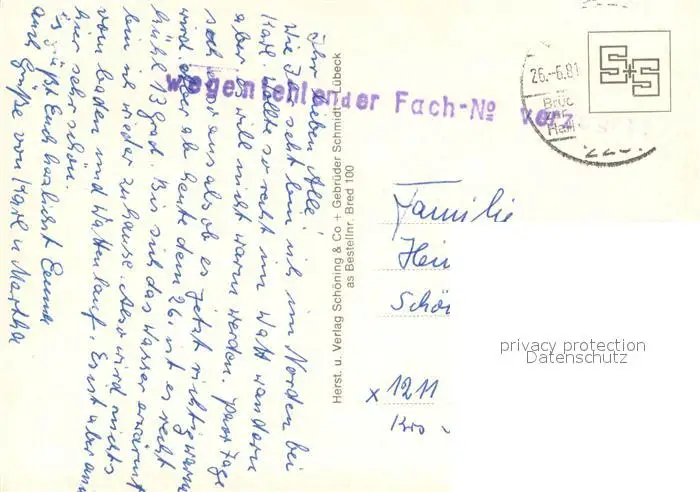 Ihr lieben Alle!
Wie Ihr seht bin ich im Norden bei
Karl. Wollte so recht im Watt wandern
aber es will nicht warm werden. Paar Tage
sah es so aus als ob es jetzt richtig warm
wird aber ab heute dem 26. ist es recht
kühl 13 grad. Bis sich das Wasser erwärmt
bin ich wieder zuhause. Also wird nichts
vom baden und Wattenlauf. Es ist aber auch
hier sehr schön.
Es grüßt Euch herzlichst Emma
auch Grüße von Karl u Martha
Herst. u. Verlag Schöning & Co + Gebrüder Schmidt - Lübeck
as Bestellnr. Bred 100
wegen fehlender Fach-No verz
26.-6.81
S+S
Familie
Hein
Schö
x 1211
privacy protection
Datenschutz